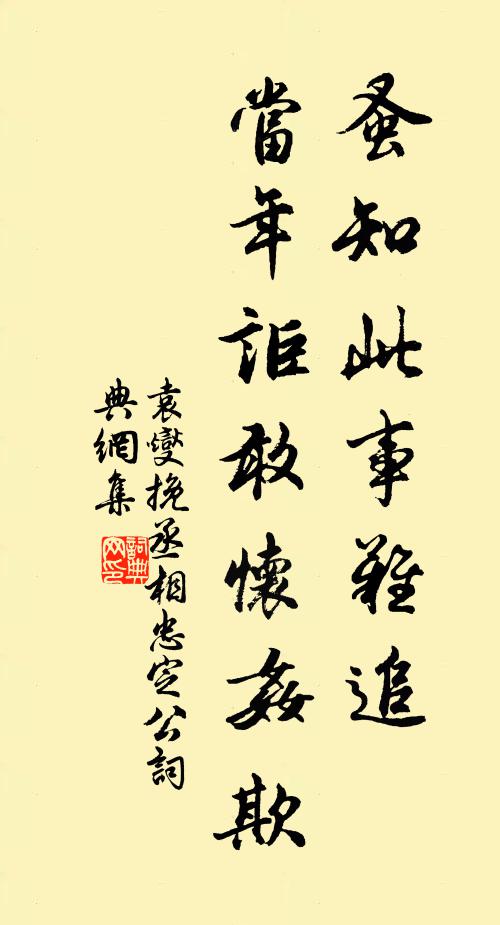 蚤知此事難追
當年詎敢懷姦欺
袁燮挽丞相忠定公詞
典網集
詞典
网印